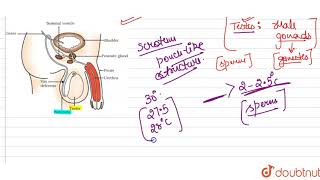 Seminal vesicle
Ureter
Bladder
Prostatic gland
Penis
Urethra
Vas
deferens
Testes
Scrotum
pouch-like
structure.
30°
27.5
28°C
[Testes: Male
gonads
[sperm]
[gametes]
2-2.5°C
[sperms]
doubtnut